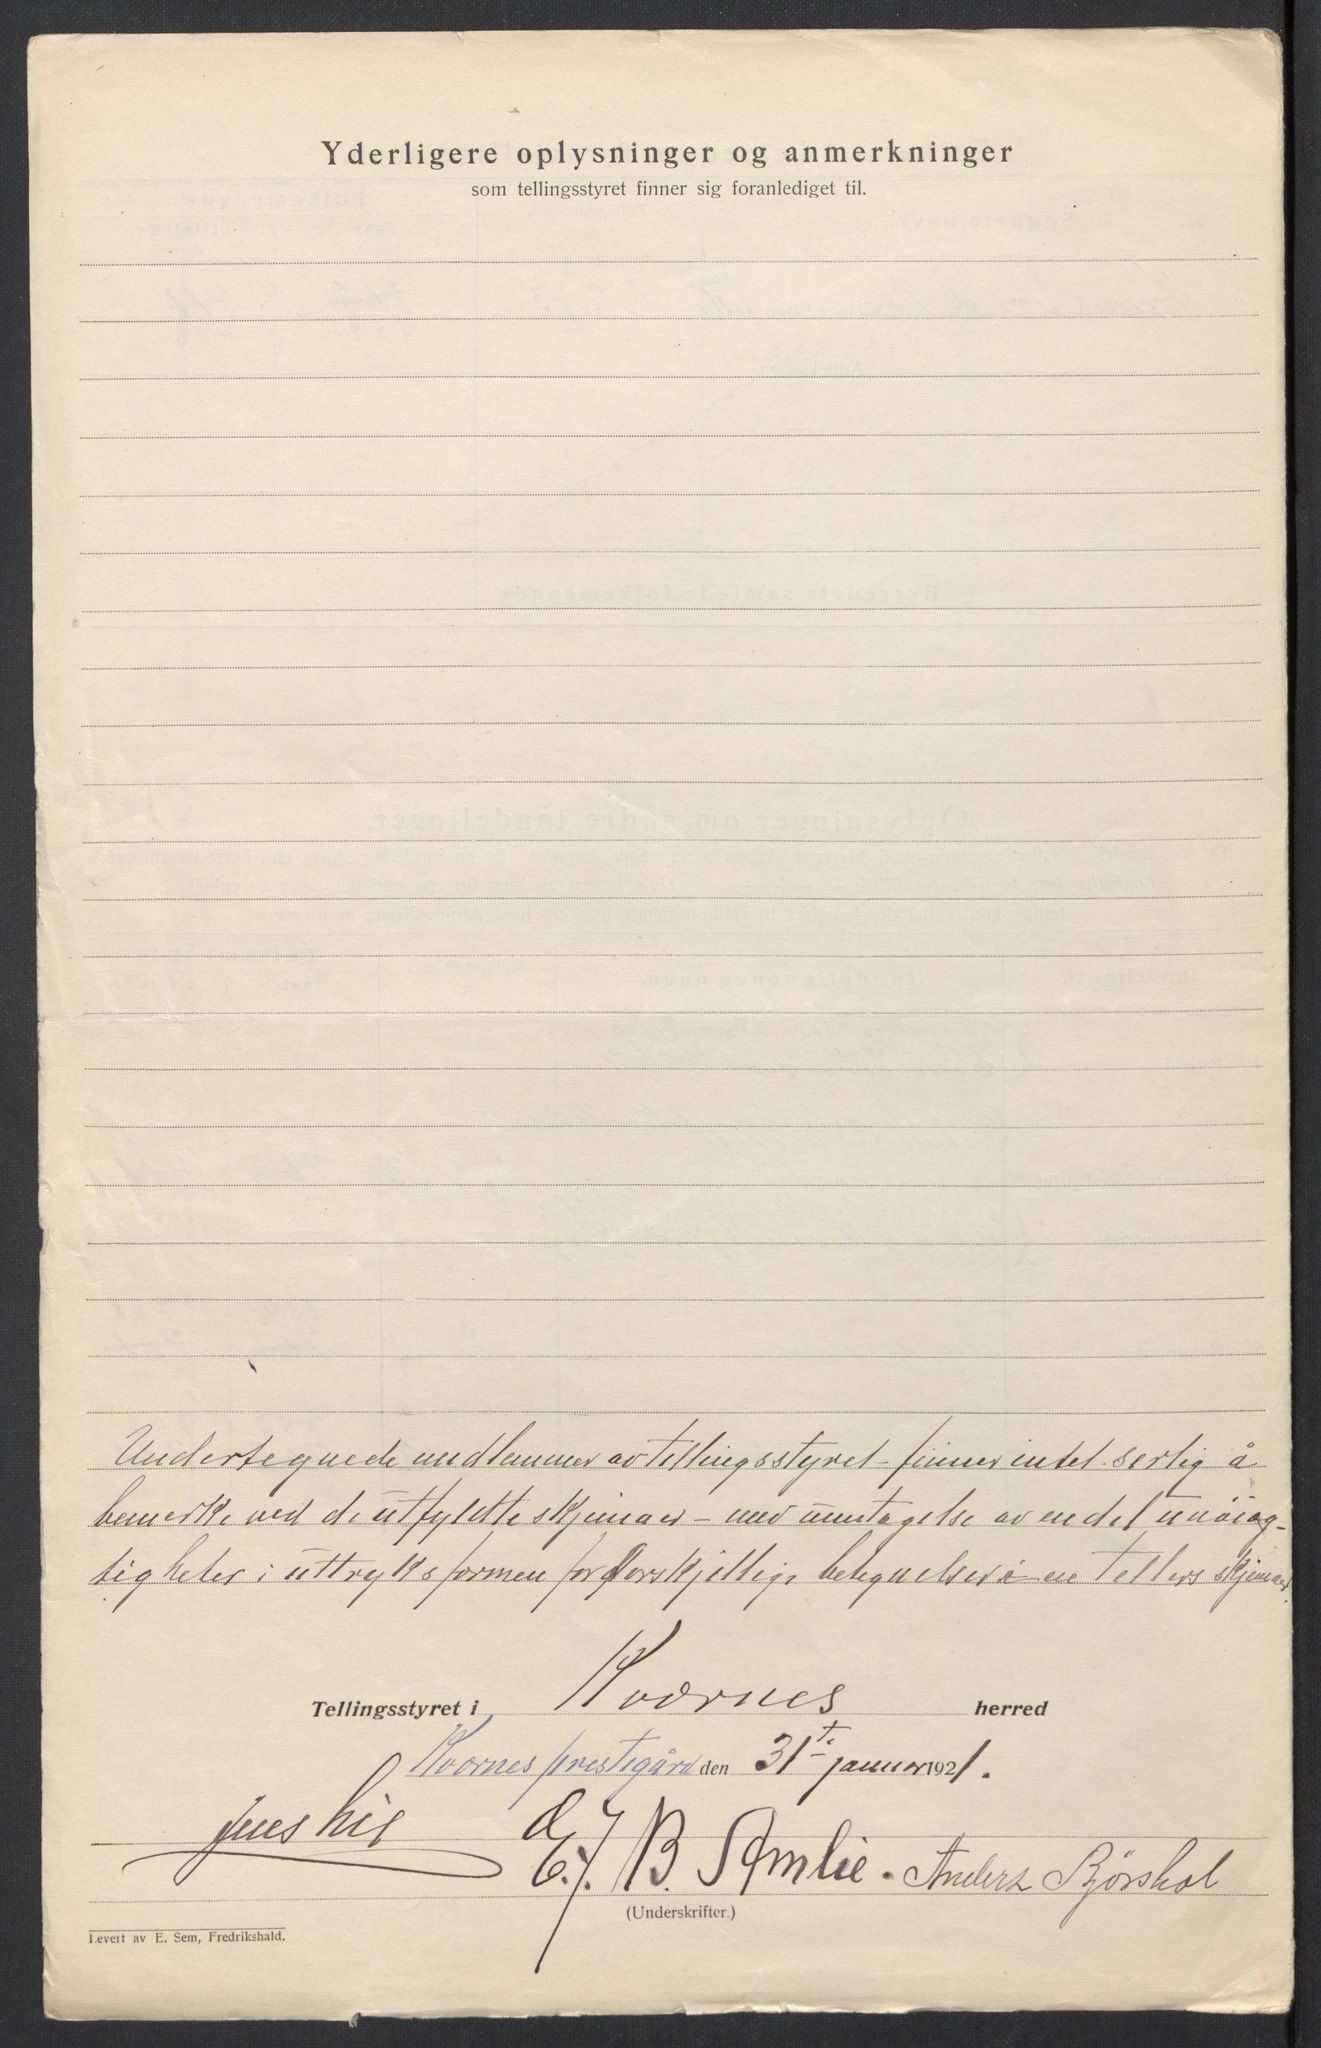 Yderligere oplysninger og anmerkninger
som tellingsstyret finner sig foranlediget til.
Undertegnede medlemmer av tellingsstyret finner intet serlig å
bemerke ved de utfyldte skjemaer – med undtagelse av en del unöiag-
tigheter i uttryksformen for forskjellige betegnelser i en tellers skjemaer.
Tellingsstyret i Kvernes herred
Kvernes prestegård den 31te januar 1921.
Jens Lie E. J. B. Amlie. Anders Bjørshol
(Underskrifter.)
Levert av E. Sem, Fredrikshald.